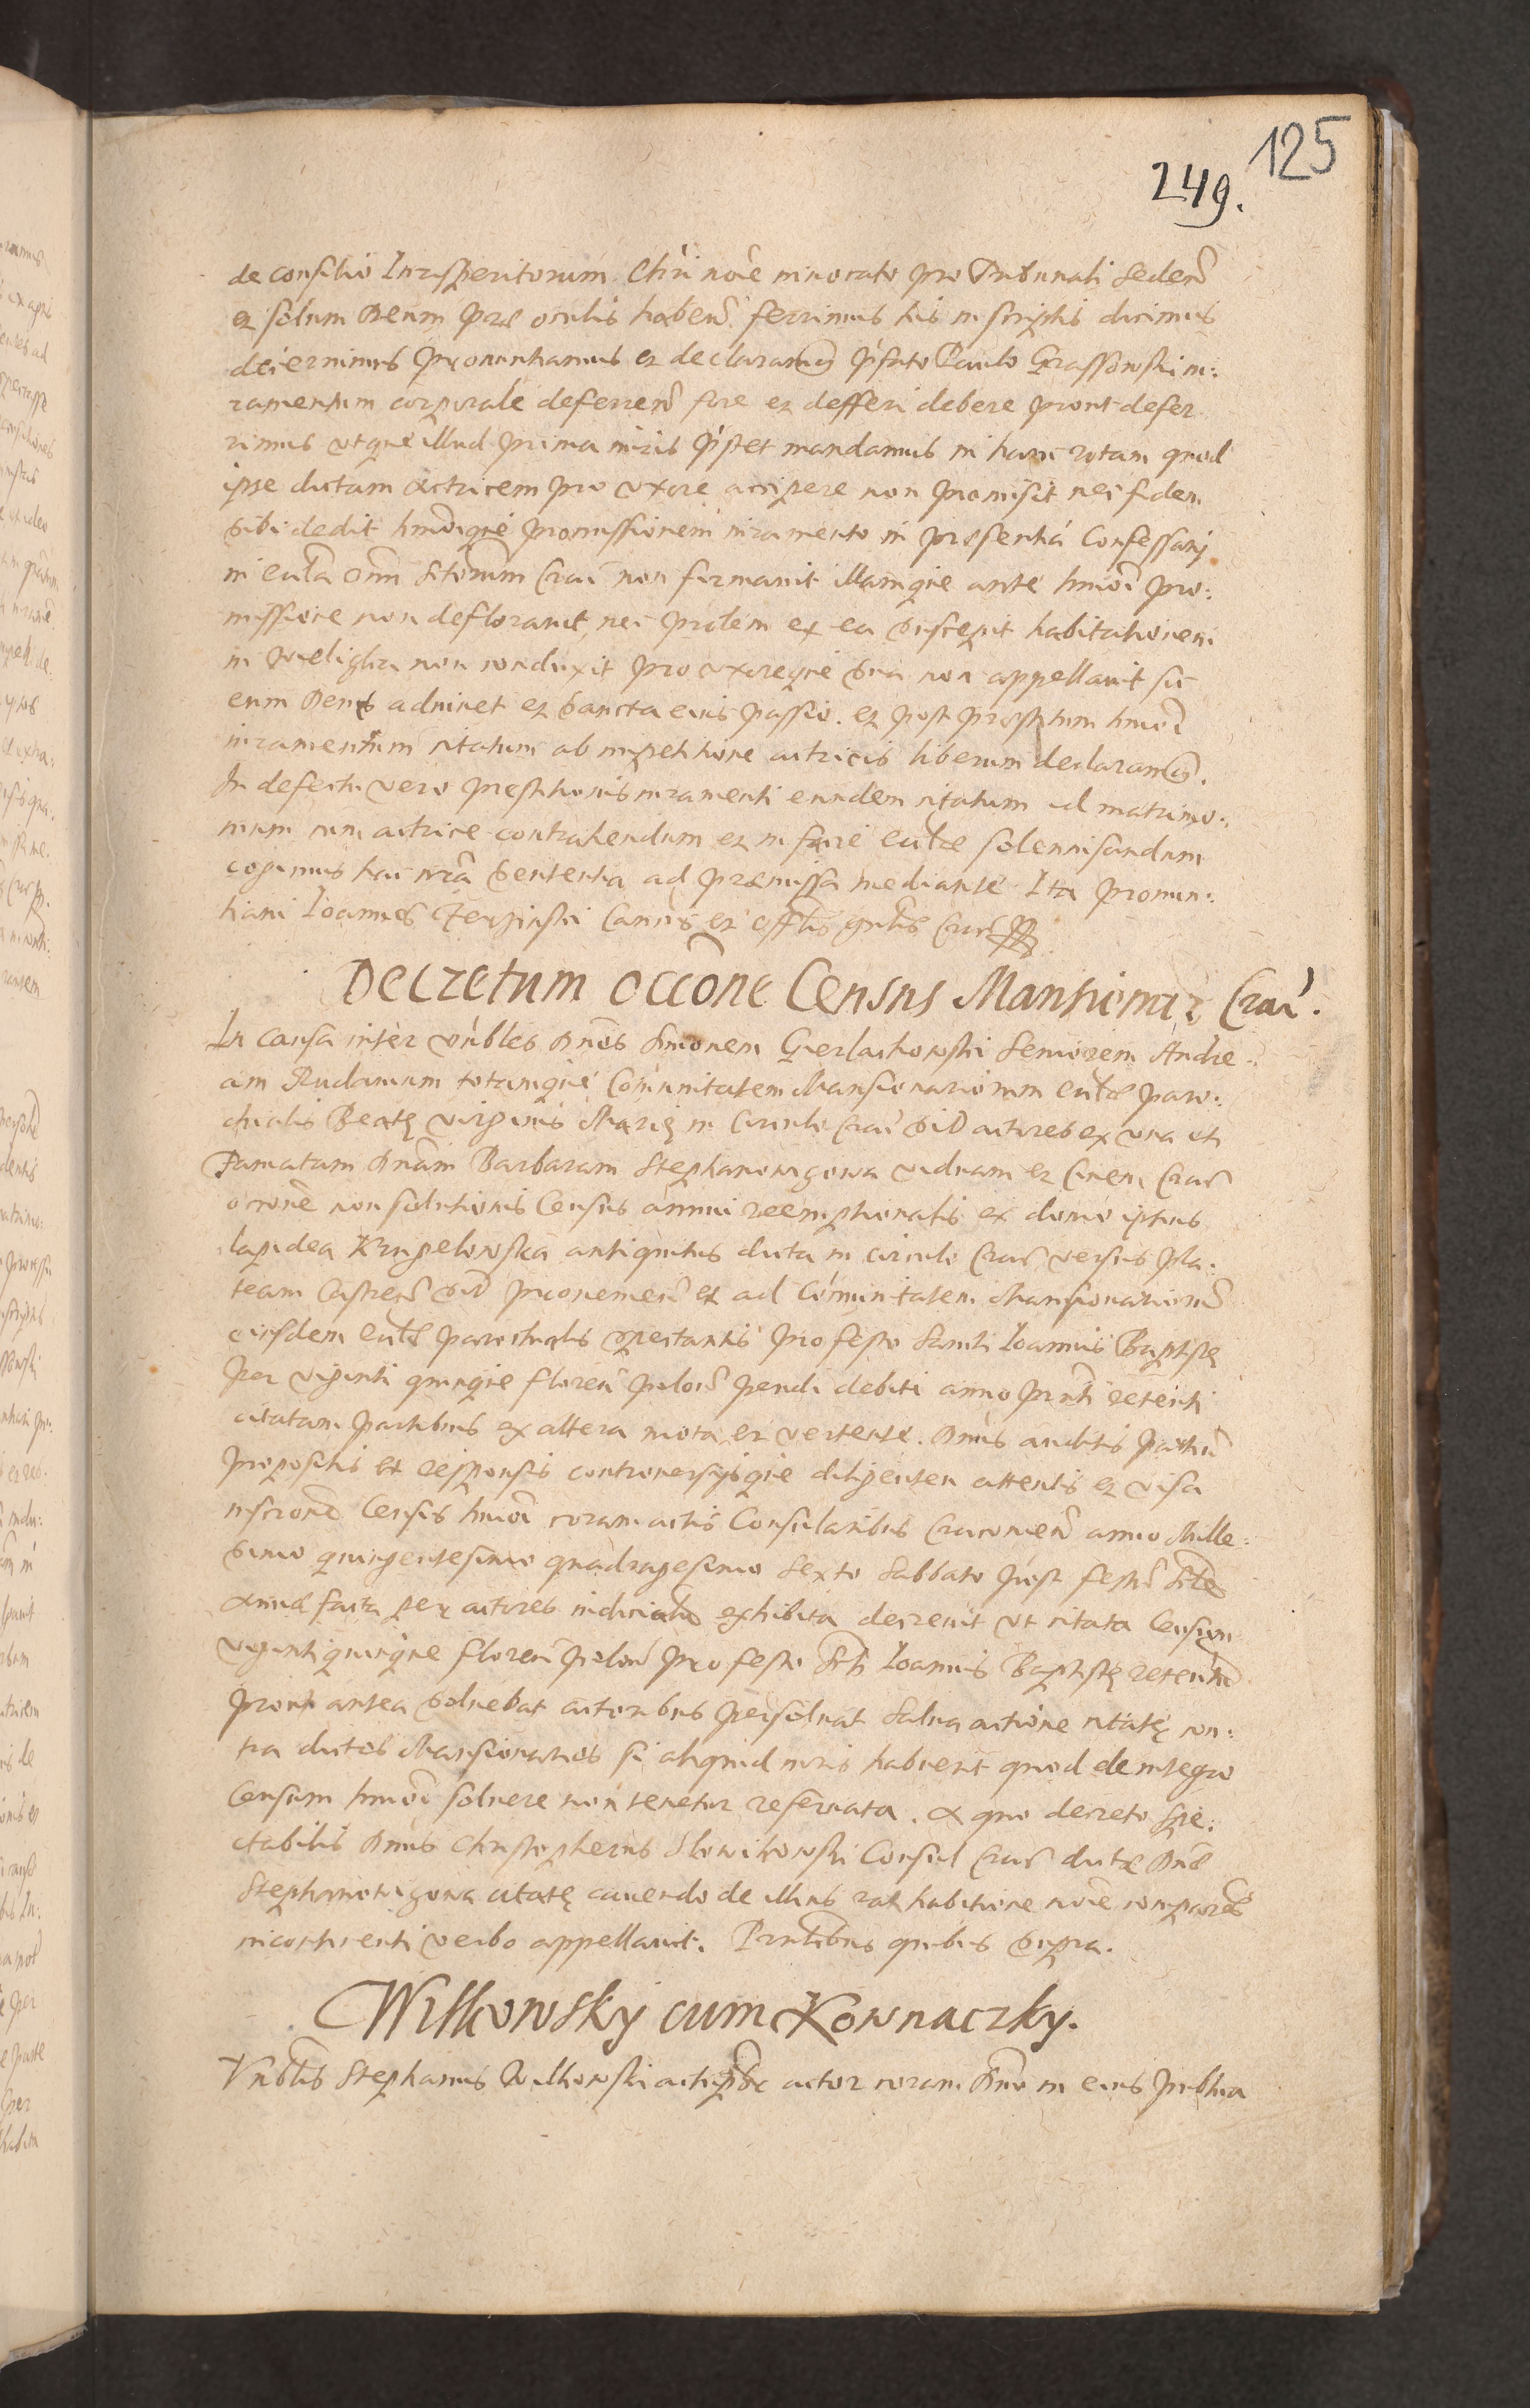 125
249.
de consilio Iurisperitorum Chri noie invocato pro Tribunali seden
et solum Deum prae oculis haben ferrimus his in scriptis dicimus
decernimus pronunctiamus et declaramus pfato Paulo Grassowski iu:
ramentum corporale deferren fore et defferi debere prout defer
rimus utque illud prima iuris pstet mandamus in hanc rotam quod
ipse dictam actricem pro uxore accipere non promisit nec fidem
sibi dedit hmoique promissionem iuramento in praesentia Confessarij
in eccla Omn Sctorum Crac non firmavit illamque ante hmoi pro:
missione non defloravit, nec prolem ex ea suscepit habitationem
in non conduxit pro uxoreque sua non appellavit sic
eum Deus adiuvet et sancta eius passio. et post praestitum hmoi
iuramentum citatum ab impetitione actricis liberum declaramus.
In defectu vero prestitionis iuramenti eundem citatum ad matrimo:
nium cum actrice contrahendum et in facie ecclae solennisandum
cogimus hac nra sententia ad praemissa mediante. Ita pronun:
tiavi Ioannes Cancus et offlis gnlis Crac
Decretum occone Census Mansionar Crac.
In causa inter vnbles Dnos Simonem Gierlachowski Seniorem Andre:
am Rudamum totamque Comunitatem Mansionariorum ecclae paro:
chialis Beatę virginis Marię in Circulo Crac sit actores ex una et
Famatam Dnam Barbaram Stephanowigowa viduam et Civem Crac
occone non solutionis Census annui reemptionalis ex domo ipsius
lapidea Krupelowska antiquitus dicta in circulo Crac versus pla:
team Castren sit provenien et ad Comunitatem Mansionarior
eiusdem ecclae parochialis spectantis pro festo Sancti Ioannis Baptistę
per viginti quinque floren polon pendi debiti anno pnti retenti
citatam partibus ex altera mota et vertente. Dnus auditis partiu
propositis et responsis controversijsque diligenter attentis et visa
inscrone Census hmoi coram actis Consularibus Cracovien anno Mille:
simo quingentesimo quadragesimo sexto Sabbato post festu Sctae
Annae facta per actores iudicialr exhibita decrevit ut citata Censum
vigintiquinque floren polon pro festo Scti Ioannis Baptistę retentu
prout antea solvebat actoribus persolvat salva actione citatę con:
tra dictos Mansionarios si aliquid iuris habuerit quod de integro
Censum hmoi solvere non tenetur reservata. A quo decreto Spe:
ctabilis Dnus Christopherus Slowikowski Consul Crac dictae Dnae
Stephanowigowa citatę cavendo de illius rati habitione noie comparens
incontinenti verbo appellavit. Pntibus quibus supra.
Wilkowsky cum Kownaczky.
Vnblis Stephanus Wilkowski actor coram Dno in eius publica